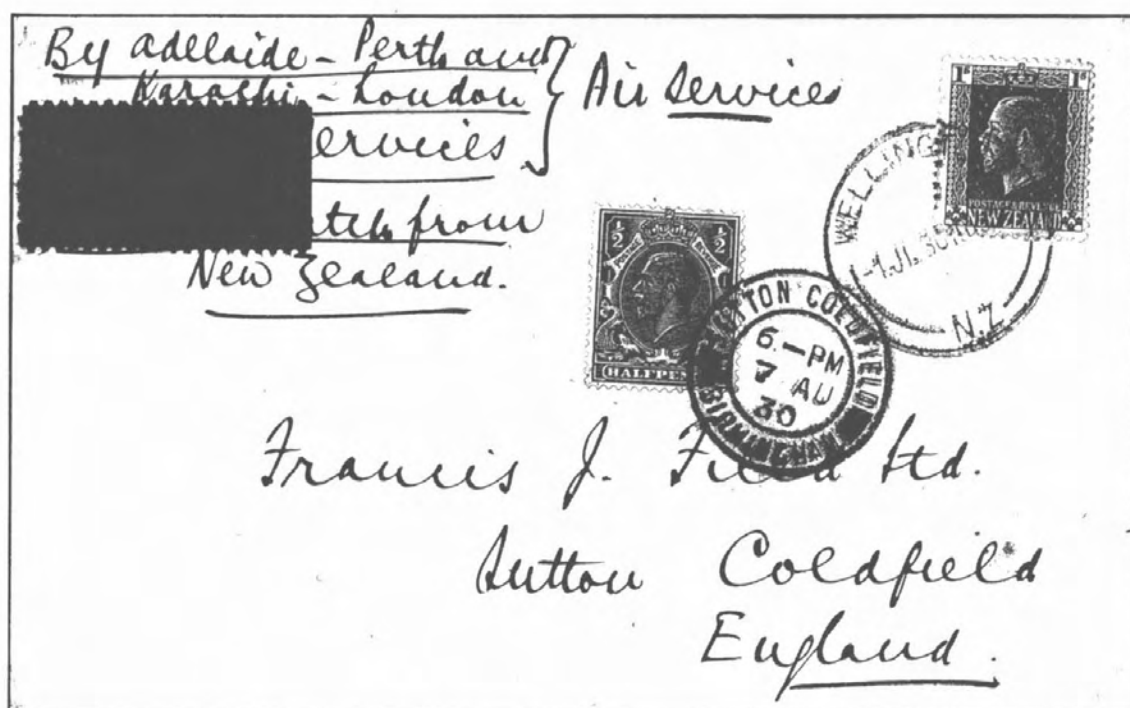 By Adelaide - Perth and
Karachi - London } Air Services
ervices
atch from
New Zealand.
1ᴅ 1ᴅ
POSTAGE & REVENUE
NEW ZEALAND
WELLING
1 JL 30
N.Z
½ ½
HALFPEN
TTON COLDFIELD
6 - PM
7 AU
30
BIRMINGHAM
Francis J. Field Ltd.
Sutton Coldfield
England.